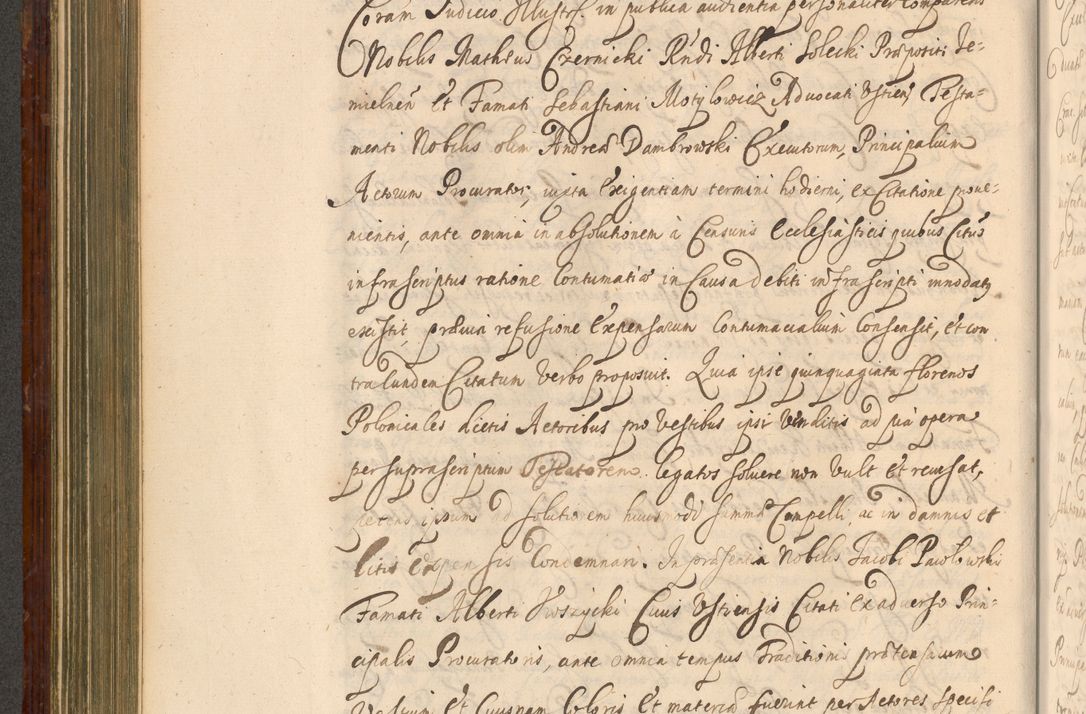 Coram Judicio Illustri. in publica audientia personaliter comparens
Nobilis Mathæus Czernicki Rńdi Alberti Solecki Præpositi Je-
mielnen Et Famati Sebastiani Motylowicz Advocati Ustien Testa-
menti Nobilis olim Andreæ Dambrowski Executorum, Principalium
Actorum Procurator, iuxta Exigentiam termini hodierni, ex Citatione prove-
nientis, ante omnia in absolutionem à Censuris Ecclesiasticis quibus Citus
infrascriptus ratione Contumatiæ in Causa debiti infrascripti innodatq
existit, præuia refusione Expensarum Contumacialium Consensit, et con
tra Eundem Citatum Verbo proposuit. Quia ipse quinquaginta florenos
Polonicales dictis Actoribus pro Vestibus ipsi Venditis ad pia opera
per suprascriptum Testatorem legatos soluere non Vult Et recusat,
petens ipsum ad solutionem huiusmodi summæ Compelli, ac in damnis et
litis Expensis Condemnari. In præsentia Nobilis Jacobi Pawlowski
Famati Alberti Swszycki Ciuis Ustiensis Citati ex aduerso Prin-
cipalis Procuratoris, ante omnia tempus Traditionis prætensarum
Vestium Et Cuiusnam Coloris Et materiæ fuerint per Actores specifi